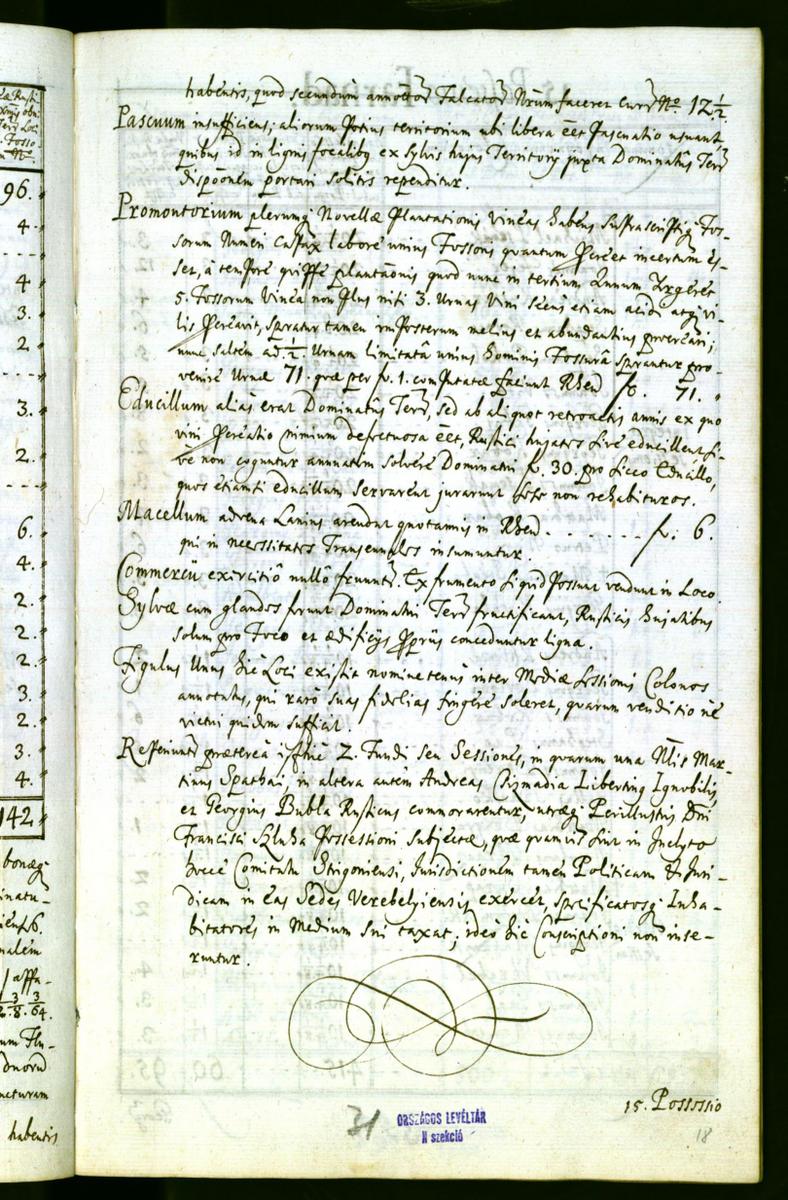 habentis, quod secundum annotatorum Falcatorum Nrum faceret Curr. No. 12 1/2
Pascuum insufficiens; aliorum Potius territorium ubi libera eet Pascuatio usuant
quibus id in lignis focalibq ex Sylvis hujus Territorij juxta Dominatus Terr
dispoonem portari solitis rependitur.
Promontorium plerumq Novellae Plantationis Vineas habens suprascriptiq Fos-
sorum Numeri Capax labore unius Fossoris quantum Proeet incertum es-
set, à tempore plantaonis quod nunc in tertium Annum Vrgeret
5. Fossorum Vinea non Plus niti 3. Urnas Vini secus etiam acidi atq vi-
lis Procreavit, speratur tamen imposterum melius et abundantius procreari;
nunc, saltem ad 1/2. Urnam limitatâ unius hominis Fossurâ sperantur pro-
venire Urnae 71. quae per fl. 1. computatae faciunt Rhen fl. 71. "
Educillum alias erat Dominatus Terr, sed ab aliquot retroactis annis ex quo
vini Procreatio nimium defectuosa eet, Rustici hujates sive educillent si-
ve non coguntur annuatim solvere Dominatui fl. 30. pro sicco Educillo,
quos etiamsi educillum servarent jurarunt sese non rehabituros.
Macellum advena Lanius arendat quotannis in Rhen . . . . . . . fl: 6.
qui in necessitates Transennales insumuntur.
Commercii exercitiô nullô fruuntr. Ex frumento siqid Possunt vendunt in Loco.
Sylvae cum glandes ferunt Dominatui Terr fructificant, Rusticis hujatibus
solum pro Foco et aedificijs Propriis conceduntur ligna.
Figulus Unus hîc Loci existit nomine tenus inter Mediae Sessionis Colonos
annotatus, qui rarò suas fidelias fingere soleret, quarum venditio nè
victui quidem sufficit.
Reperiuntr praetereà isthîc 2. Fundi seu Sessiones, in quarum una Nlis Mar-
tinus Spachai, in altera autem Andreas Csizmadia Libertinq Ignobilis
et Georgius Bubla Rusticus commorarentur, utraeq Perillustris Dni
Francisci Szluha Possessioni subjectae, quae quamvis sint in Inclyto
hocce Comitatu Strigoniensi, Jurisdictionem tamen Politicam et Juri-
dicam in eas Sedes Verebelyiensis exercet, specificatosq Inha-
bitatores in Medium sui taxat; ideo hîc Conscriptioni non inse-
runtur.
15. Possessio
31
ORSZÁGOS LEVÉLTÁR
N szekció
18
96.
4.
4
3.
2.
3.
2.
6.
4.
2.
2.
2.
3.
2.
3.
4.
142.
habentis